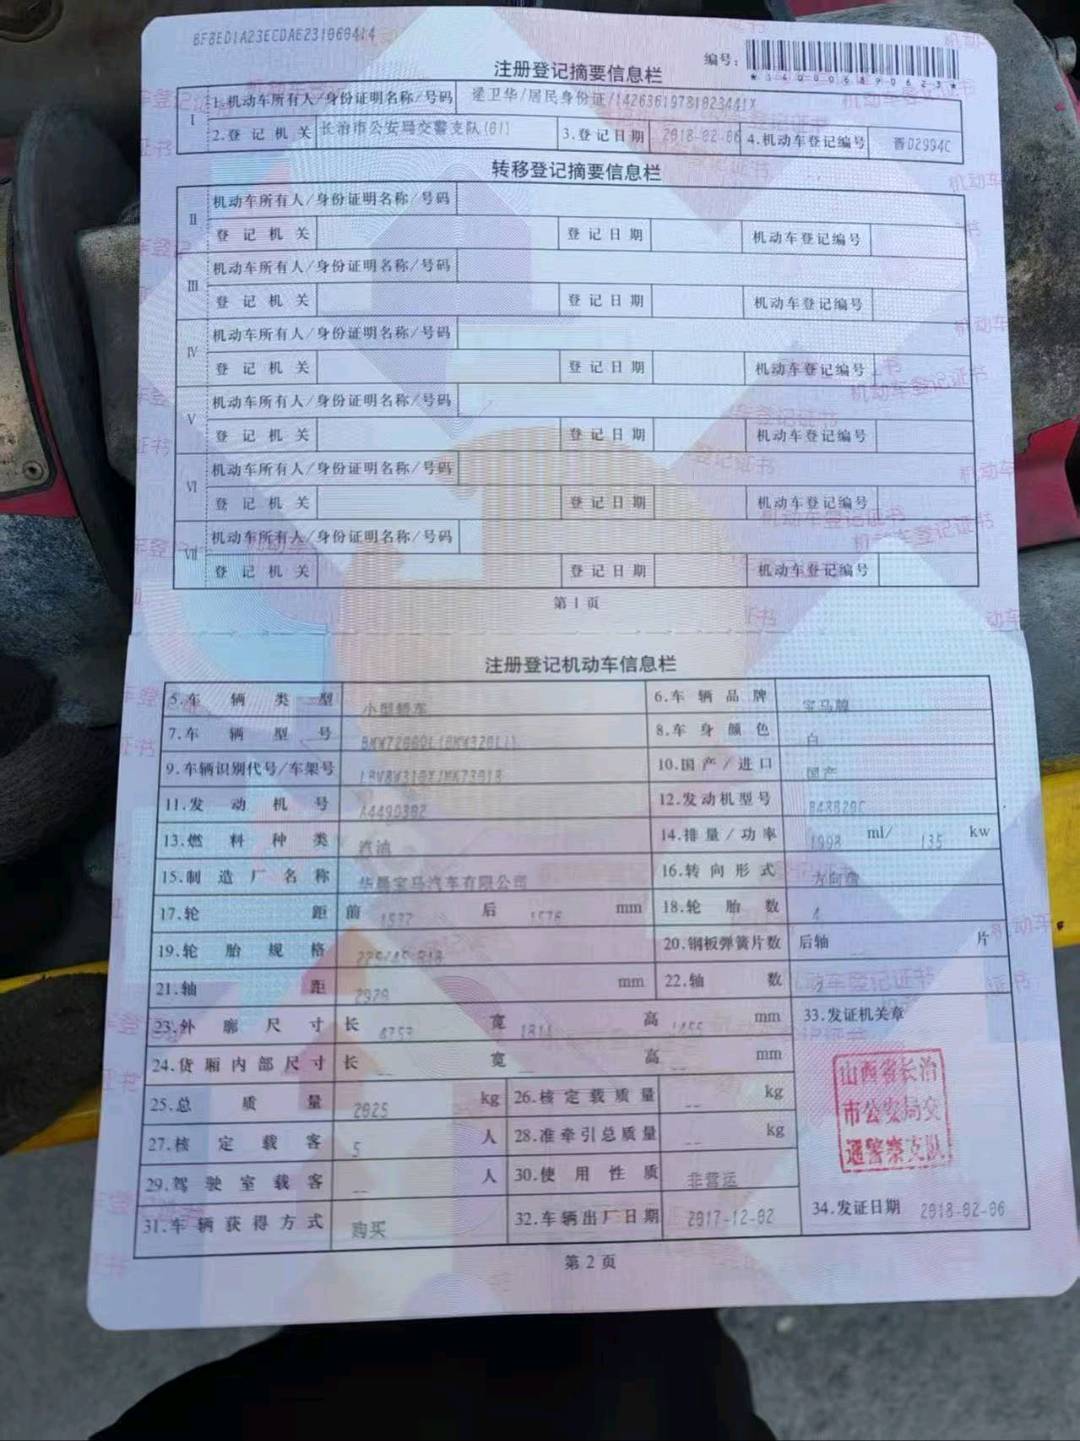 注册登记摘要信息栏
编号:
Ⅰ 1.机动车所有人/身份证明名称/号码 梁卫华/居民身份证/
2.登记机关 长治市公安局交警支队(01) 3.登记日期 2018-02-06 4.机动车登记编号 晋D2994C
转移登记摘要信息栏
Ⅱ 机动车所有人/身份证明名称/号码
登记机关 登记日期 机动车登记编号
Ⅲ 机动车所有人/身份证明名称/号码
登记机关 登记日期 机动车登记编号
Ⅳ 机动车所有人/身份证明名称/号码
登记机关 登记日期 机动车登记编号
Ⅴ 机动车所有人/身份证明名称/号码
登记机关 登记日期 机动车登记编号
Ⅵ 机动车所有人/身份证明名称/号码
登记机关 登记日期 机动车登记编号
Ⅶ 机动车所有人/身份证明名称/号码
登记机关 登记日期 机动车登记编号
第1页
注册登记机动车信息栏
5.车辆类型 小型轿车 6.车辆品牌 宝马牌
7.车辆型号 8.车身颜色 白
9.车辆识别代号/车架号 10.国产/进口 国产
11.发动机号 A4490302 12.发动机型号 B48B20C
13.燃料种类 汽油 14.排量/功率 1998 ml/ 135 kw
15.制造厂名称 华晨宝马汽车有限公司 16.转向形式 方向盘
17.轮距 前 后 1576 mm 18.轮胎数 4
19.轮胎规格 225/45 R18 20.钢板弹簧片数 后轴 -- 片
21.轴距 2920 mm 22.轴数 2
23.外廓尺寸 长 4753 宽 1814 高 1455 mm 33.发证机关章
24.货厢内部尺寸 长 -- 宽 -- 高 -- mm
山西省长治
市公安局交
通警察支队
25.总质量 2025 kg 26.核定载质量 -- kg
27.核定载客 5 人 28.准牵引总质量 -- kg
29.驾驶室载客 -- 人 30.使用性质 非营运
31.车辆获得方式 购买 32.车辆出厂日期 2017-12-02 34.发证日期 2018-02-06
第2页